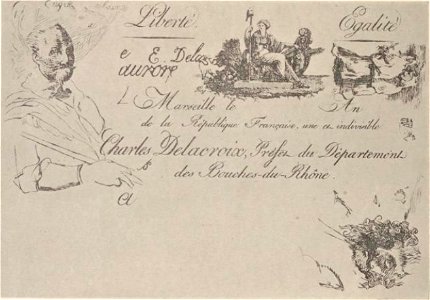 Liberté Egalité
e E. Dela
aurore
Marseille le An
de la République Française, une et indivisible
Charles Delacroix, Préfet du Département
des Bouches-du-Rhône.
a